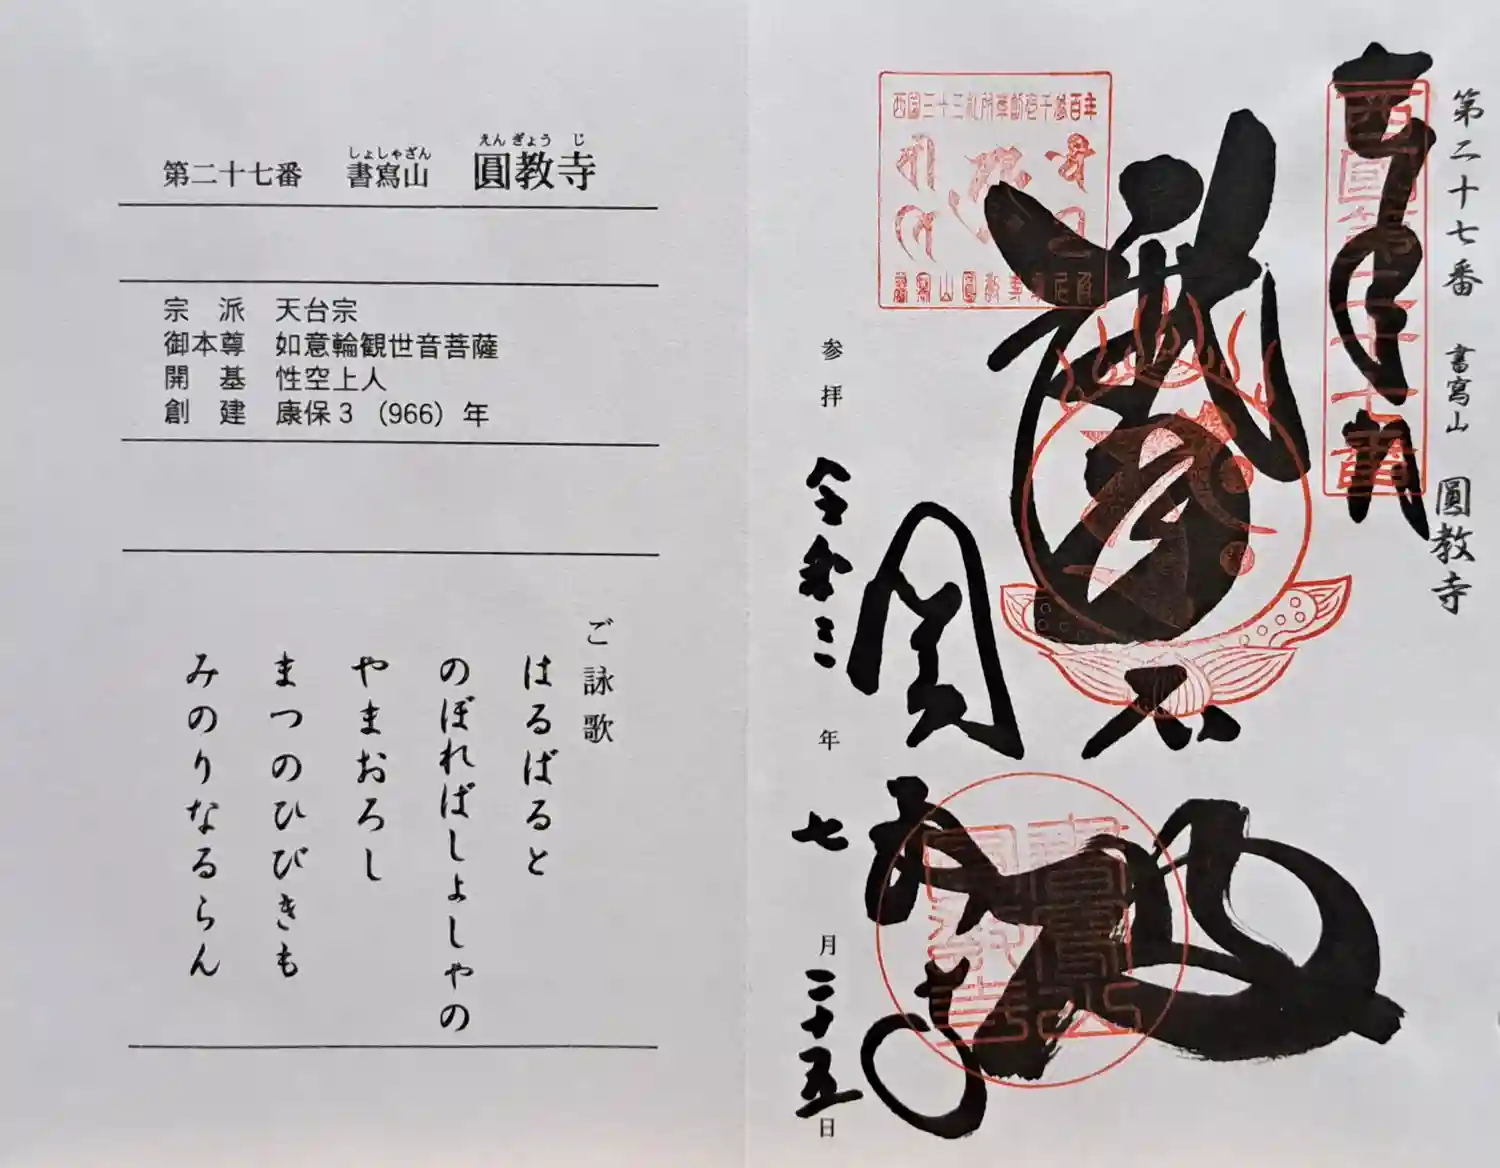 第二十七番 書寫山 圓教寺
しょしゃざん
えんぎょうじ
宗派 天台宗
御本尊 如意輪観世音菩薩
開基 性空上人
創建 康保3(966)年
ご詠歌
はるばると
のぼればしょしゃの
やまおろし
まつのひびきも
みのりなるらん
第二十七番 書寫山 圓教寺
奉拝
西國第二十七番
参拝 令和三年七月二十五日
書寫山
圓教寺